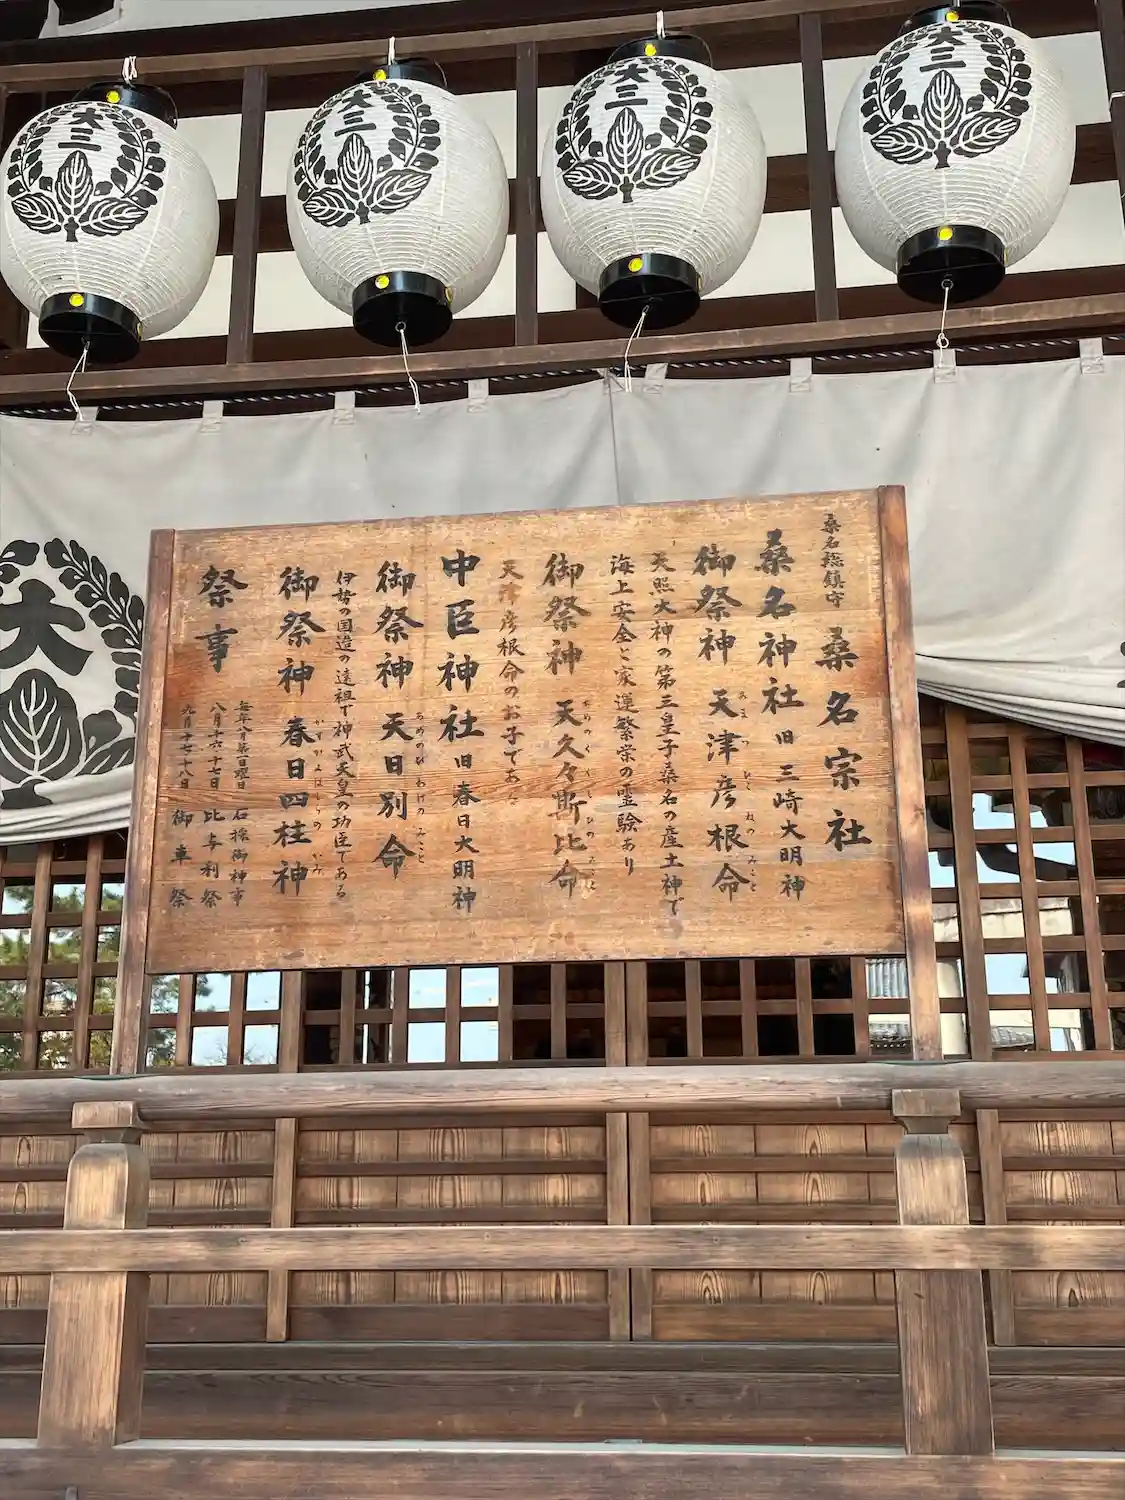 大三
大三
大三
大三
大
桑名総鎮守 桑名宗社
桑名神社 旧 三崎大明神
御祭神 天津彦根命
あまつひこねのみこと
天照大神の第三皇子桑名の産土神で
海上安全と家運繁栄の霊験あり
御祭神 天久々斯比命
天津彦根命のお子である
中臣神社 旧 春日大明神
御祭神 天日別命
あめのひわけのみこと
伊勢の国造の遠祖で神武天皇の功臣である
御祭神 春日四柱神
祭事
毎年八月第一日曜日 石採御神事
八月十六十七日 比与利祭
九月十七十八日 御車祭